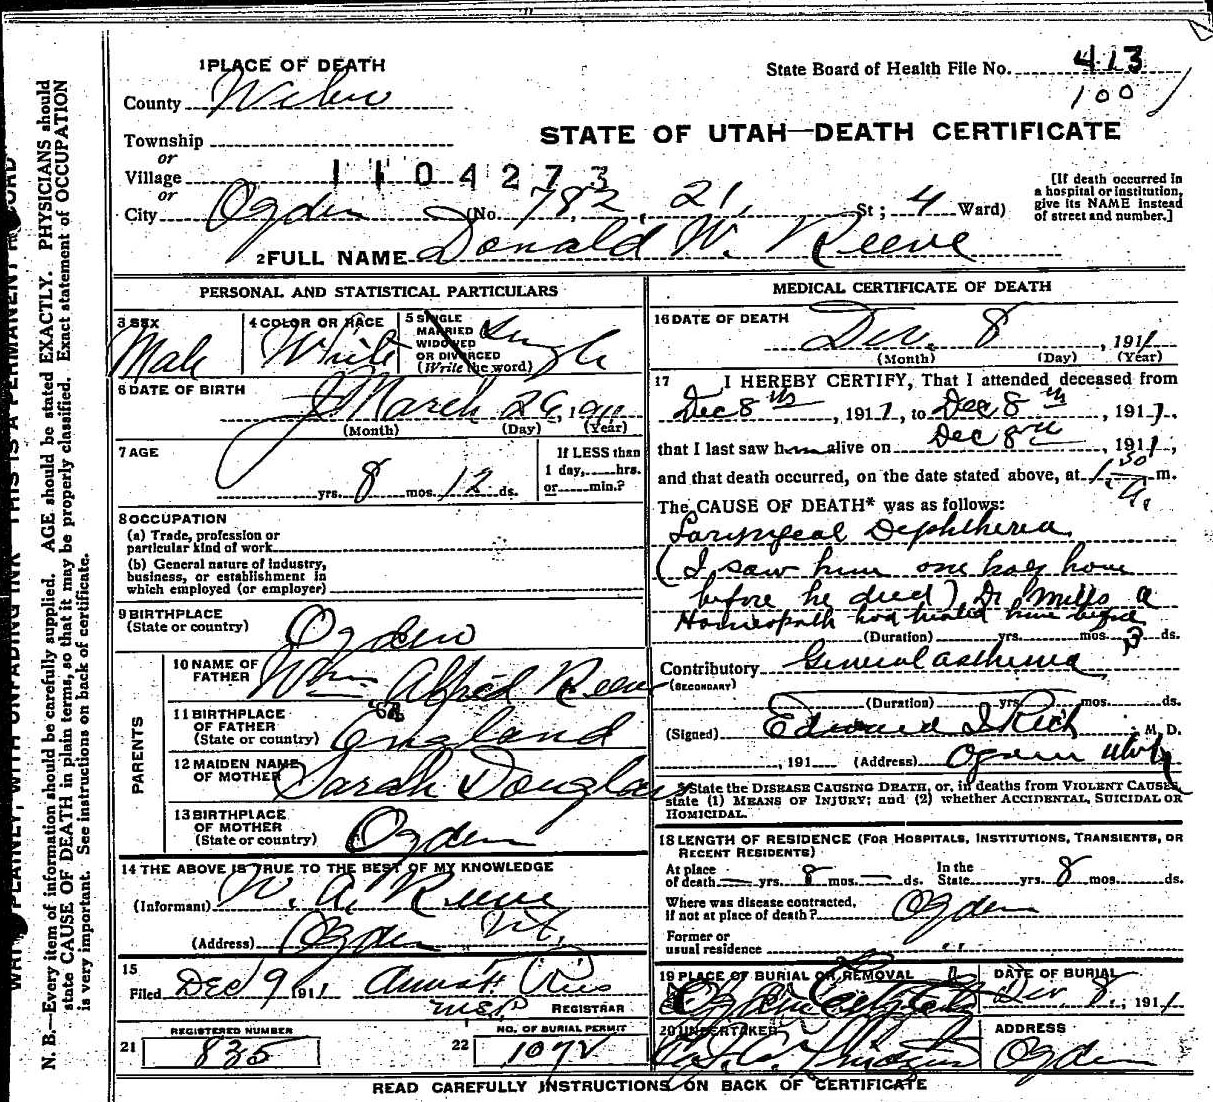 1 PLACE OF DEATH
State Board of Health File No. 413
County Weber
100
Township
or
STATE OF UTAH—DEATH CERTIFICATE
Village 1104273
or
City Ogden (No. 782, 21, St; 4 Ward)
[If death occurred in a hospital or institution, give its NAME instead of street and number.]
2 FULL NAME Donald W. Reeve
PERSONAL AND STATISTICAL PARTICULARS
3 SEX Male
4 COLOR OR RACE White
5 SINGLE MARRIED WIDOWED OR DIVORCED (Write the word) Single
6 DATE OF BIRTH March 26, 1911
(Month) (Day) (Year)
7 AGE
yrs. 8 mos. 12 ds.
If LESS than 1 day, hrs. or min.?
8 OCCUPATION
(a) Trade, profession or particular kind of work
(b) General nature of industry, business, or establishment in which employed (or employer)
9 BIRTHPLACE
(State or country) Ogden
PARENTS
10 NAME OF FATHER Wm Alfred Reeve
11 BIRTHPLACE OF FATHER (State or country) England
12 MAIDEN NAME OF MOTHER Sarah Douglas
13 BIRTHPLACE OF MOTHER (State or country) Ogden
14 THE ABOVE IS TRUE TO THE BEST OF MY KNOWLEDGE
(Informant) W. A. Reeve
(Address) Ogden Ut.
15
Filed Dec 9 1911
REGISTRAR
REGISTERED NUMBER
21 835
NO. OF BURIAL PERMIT
22 1072
MEDICAL CERTIFICATE OF DEATH
16 DATE OF DEATH
Dec. 8, 1911
(Month) (Day) (Year)
17 I HEREBY CERTIFY, That I attended deceased from
Dec 8th, 1911, to Dec 8th, 1911,
that I last saw him alive on Dec 8th, 1911,
and that death occurred, on the date stated above, at 1.30 A. m.
The CAUSE OF DEATH* was as follows:
Laryngeal Diphtheria
(I saw him one half hour
before he died) Dr Mills a
Homeopath had treated him before
(Duration) yrs. mos. 3 ds.
Contributory General asthenia
(SECONDARY)
(Duration) yrs. mos. ds.
(Signed) Edward I Rich, M. D.
, 191 (Address) Ogden Utah
*State the DISEASE CAUSING DEATH, or, in deaths from VIOLENT CAUSES, state (1) MEANS OF INJURY; and (2) whether ACCIDENTAL, SUICIDAL OR HOMICIDAL.
18 LENGTH OF RESIDENCE (FOR HOSPITALS, INSTITUTIONS, TRANSIENTS, OR RECENT RESIDENTS)
At place of death — yrs. 8 mos. — ds. In the State yrs. 8 mos. ds.
Where was disease contracted, if not at place of death? Ogden
Former or usual residence " "
19 PLACE OF BURIAL OR REMOVAL
Ogden City
DATE OF BURIAL
Dec. 8, 1911
20 UNDERTAKER
ADDRESS
Ogden
READ CAREFULLY INSTRUCTIONS ON BACK OF CERTIFICATE
PLAINLY, WITH UNFADING INK THIS IS A PERMANENT RECORD
N. B.—Every item of information should be carefully supplied. AGE should be stated EXACTLY. PHYSICIANS should
state CAUSE OF DEATH in plain terms, so that it may be properly classified. Exact statement of OCCUPATION
is very important. See instructions on back of certificate.